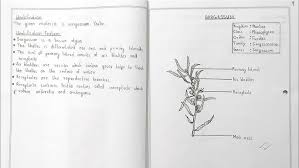 Identification
The given material is Sargassum Thallus.
Identification Features
Sargassum is a brown algae
The thallus is differentiated into axis and primary laterals.
The
of primary laterals consists of air bladders and
Receptacle.
Air bladders are
which contain gases helps to float
the thallus on the surface of water.
Receptacles are the reproductive branches.
Receptacle contains fertile cavities called conceptacle which
produce antheridia and oogonia.
SARGASSUM
Kingdom : Plantae
Class : Phaeophyceae
Order : Fucales
Family : Sargassaceae
Genus : Sargassum
Primary laterals
Air bladder
Receptacle
Main axis